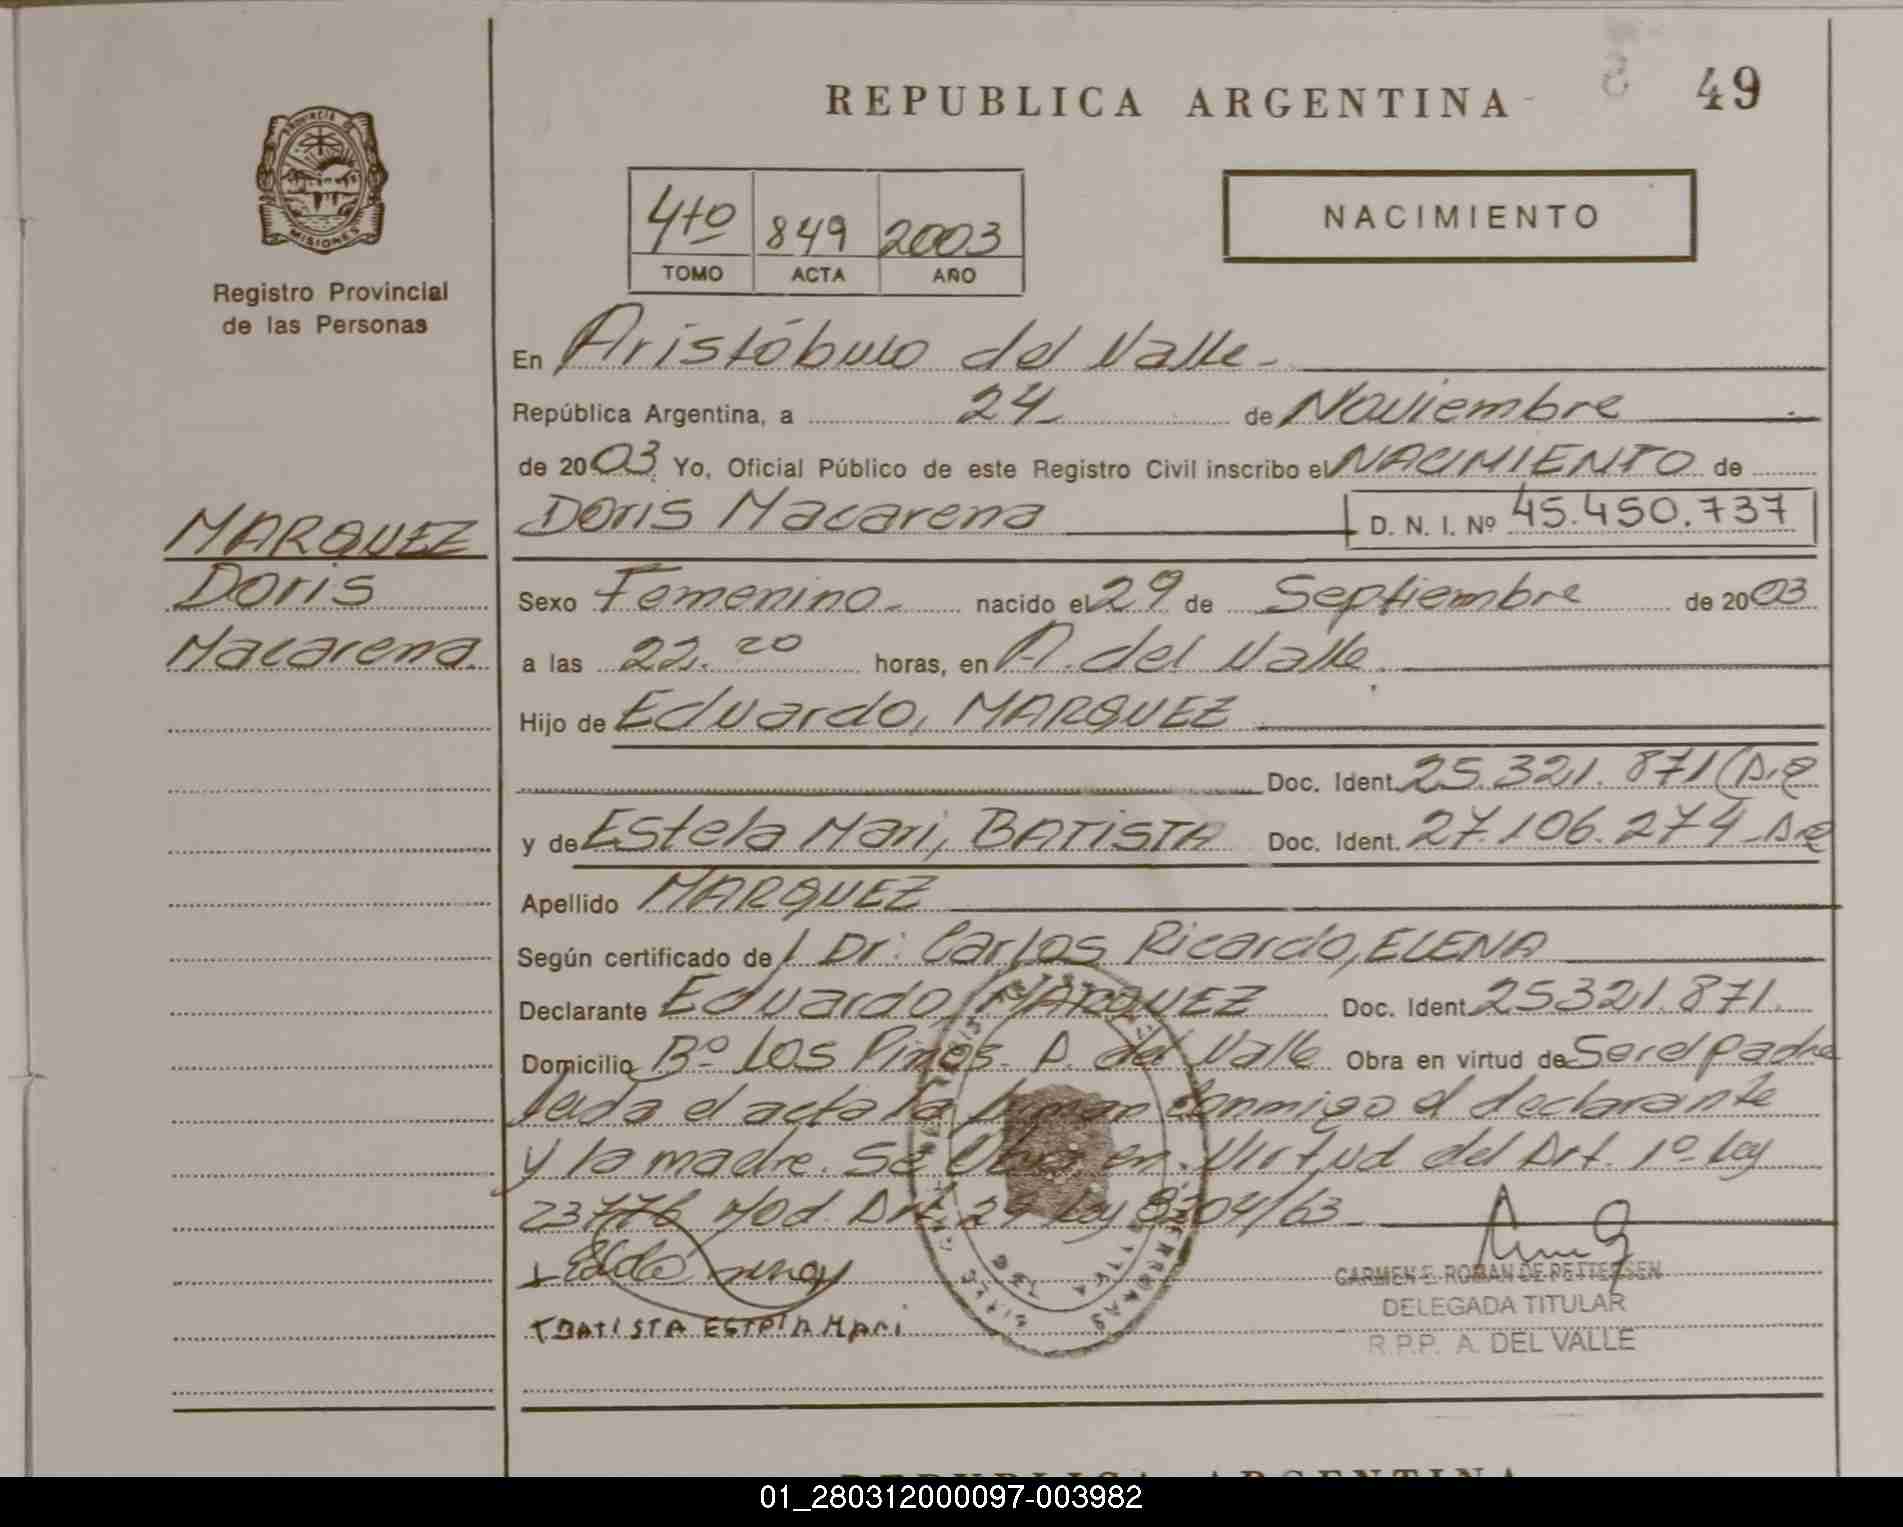 REPUBLICA ARGENTINA
49
PROVINCIA DE
MISIONES
Registro Provincial
de las Personas
4to 849 2003
TOMO ACTA AÑO
NACIMIENTO
En Aristóbulo del Valle
República Argentina, a 24 de Noviembre
de 2003 Yo, Oficial Público de este Registro Civil inscribo el NACIMIENTO de
Doris Macarena D. N. I. Nº 45.450.737
MARQUEZ
Doris
Macarena
Sexo Femenino nacido el 29 de Septiembre de 2003
a las 22.20 horas, en A. del Valle
Hijo de Eduardo, MARQUEZ
Doc. Ident. 25.321.871
y de Estela Mari, BATISTA Doc. Ident. 27.106.274
Apellido MARQUEZ
Según certificado de Dr: Carlos Ricardo, ELENA
Declarante Eduardo, MARQUEZ Doc. Ident. 25321.871.
Domicilio Bº Los Pinos - A. del Valle Obra en virtud de Ser el padre
leida el acta la firman conmigo el declarante
y la madre. Se obra en virtud del Art. 1º Ley
23776 Mod. Art. 29 Ley 8204/63
BATISTA ESTELA MARI
CARMEN E. ROMAN DE PETTERSEN
DELEGADA TITULAR
R.P.P. A. DEL VALLE
REPUBLICA ARGENTINA
01_280312000097-003982